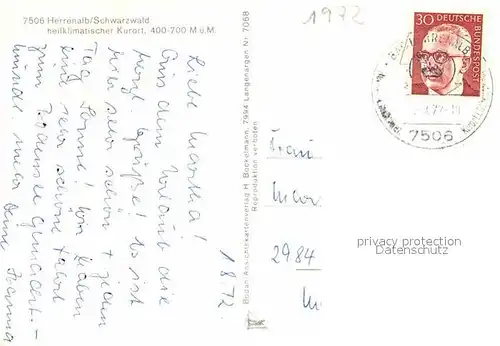 7506 Herrenalb/Schwarzwald
heilklimatischer Kurort, 400-700 M ü.M.
1972
30 DEUTSCHE
BUNDESPOST
7506
Liebe Martha!
Aus dem Urlaub die
herzl. Grüße! Es ist
hier sehr schön + jeden
Tag Sonne! Wir haben
eine sehr schöne Fahrt
zum Bodensee gemacht. -
1.8.72.
Bodan Ansichtskartenverlag H. Bockelmann, 7994 Langenargen Nr. 7068
Reproduktion verboten
Frau
2984
privacy protection
DatenSchutz